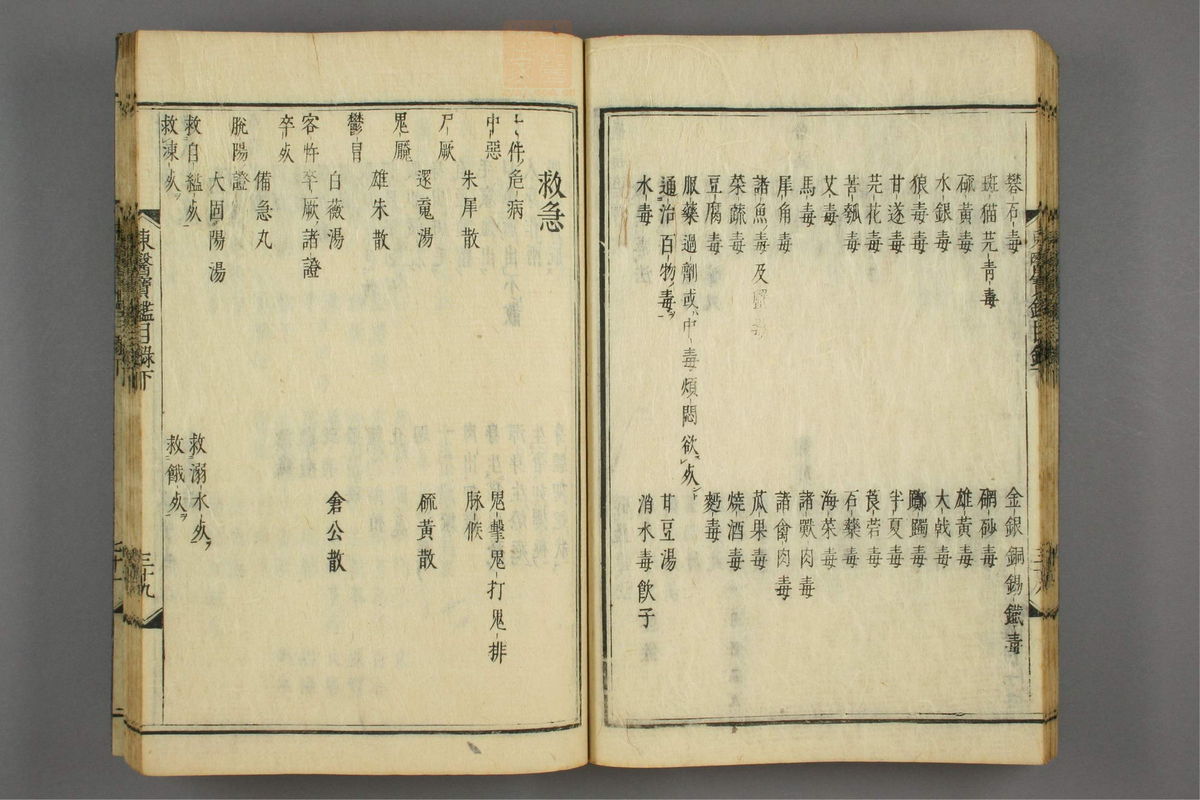 礬石毒
金銀銅錫鐵毒
斑猫芫青毒
硇砂毒
硫黃毒
雄黃毒
水銀毒
大戟毒
狼毒毒
躑躅毒
甘遂毒
半夏毒
芫花毒
莨菪毒
苦瓠毒
石藥毒
艾毒
海菜毒
馬毒
諸獸肉毒
犀角毒
諸禽肉毒
諸魚毒及蟹毒
瓜果毒
菜蔬毒
燒酒毒
豆腐毒
麪毒
服藥過劑或中毒煩悶欲死
通治百物毒
甘豆湯
水毒
消水毒飮子
救急
十件危病
中惡
鬼擊鬼打鬼排
朱犀散
脉候
尸厥
還魂湯
硫黃散
鬼魘
雄朱散
鬱冒
白薇湯
倉公散
客忤卒厥諸證
卒死
備急丸
脫陽證
大固陽湯
救自縊死
救溺水死
救凍死
救餓死
東醫寶鑑目錄下
三十九